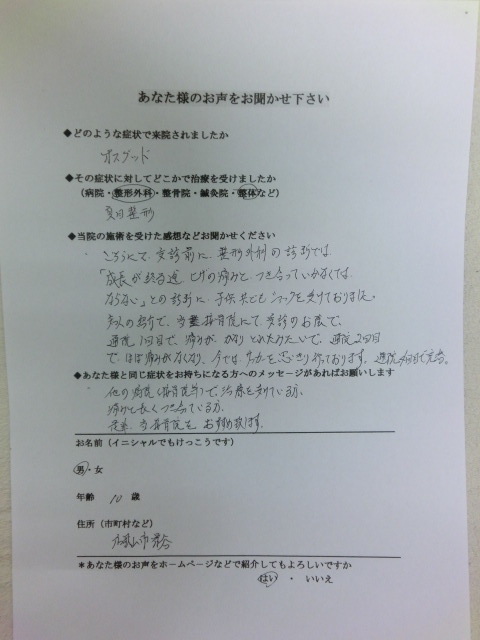 あなた様のお声をお聞かせ下さい
◆どのような症状で来院されましたか
オスグッド
◆その症状に対してどこかで治療を受けましたか
(病院・整形外科・整骨院・鍼灸院・整体など)
整形
◆当院の施術を受けた感想などお聞かせください
受診前に、整形外科の診断では、
「成長が終る迄、ヒザの痛みと、つき合っていかなくては、
ならない」との診断に、子供共どもショックを受けておりました。
知人の紹介で、当整接骨院にて受診のお陰で、
通院1回目で、痛みが、かなりとれたみたいで、通院2回目
で、ほぼ痛みがなくなり、今では、サッカーを思いきりやっております。通院4回目で完治。
◆あなた様と同じ症状をお持ちになる方へのメッセージがあればお願いします
他の病院(接骨院等)で治療を受けている方、
痛みと長くつき合っている方、
是非、当接骨院をお勧め致します。
お名前(イニシャルでもけっこうです)
男・女
年齢 10 歳
住所(市町村など)
市
*あなた様のお声をホームページなどで紹介してもよろしいですか
はい ・ いいえ